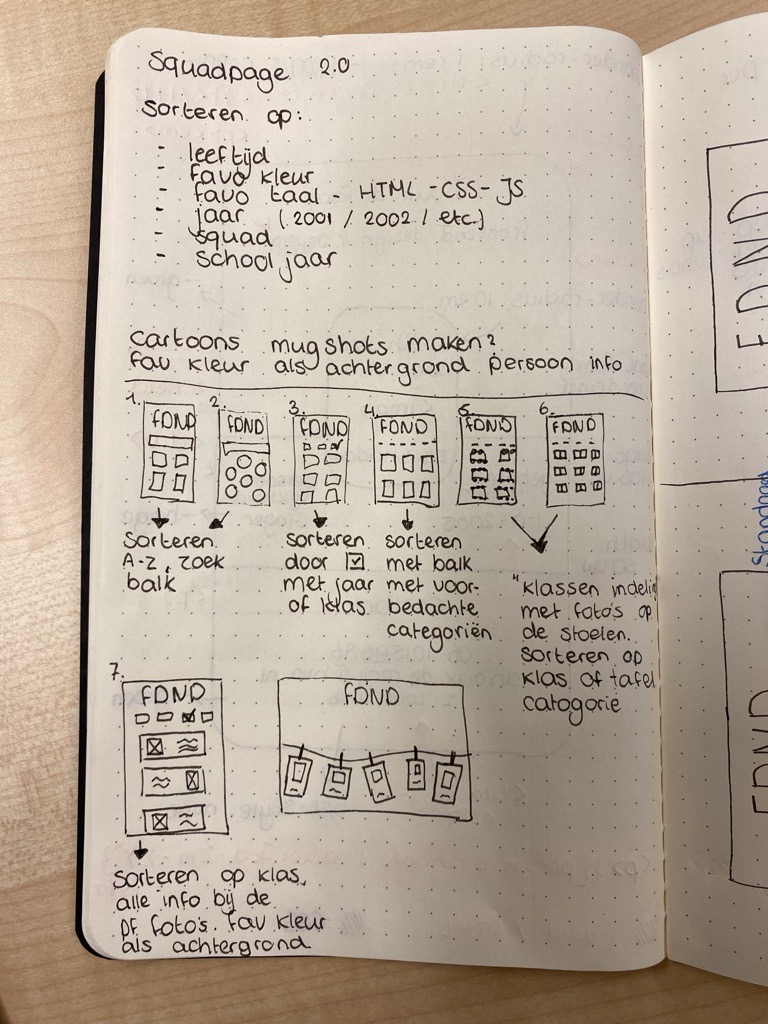 Squadpage 2.0
Sorteren op:
- leeftijd
- favo kleur
- favo taal - HTML - CSS - JS
- jaar (2001 / 2002 / etc.)
- squad
- school jaar
cartoons mugshots maken?
fav kleur als achtergrond persoon info
1. 2. 3. 4. 5. 6.
FDND FDND FDND FDND FDND FDND
Sorteren
A-Z, zoek
balk
sorteren
door ☑
met jaar
of klas
sorteren
met balk
met voor-
bedachte
categoriën
"klassen indelin
met foto's op
de stoelen.
sorteren op
klas of tafel
catogorie
7.
FDND
FDND
Sorteren op klas,
alle info bij de
pf foto's. fav kleur
als achtergrond
FDND
Standaard
FDND